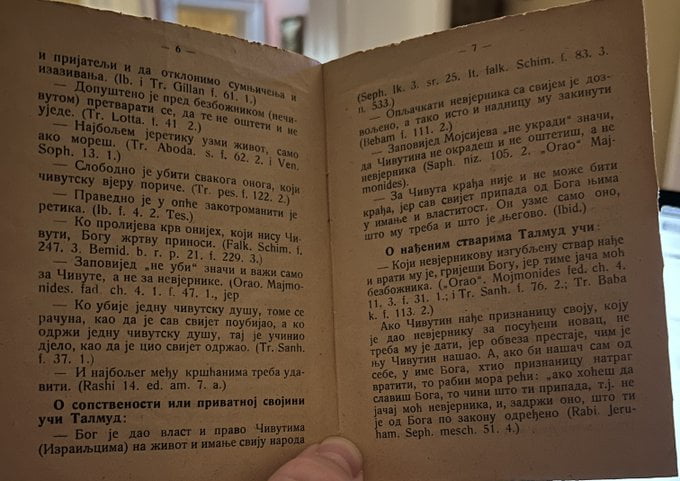 — 6 —
и пријатељи и да отклонимо сумњичења и
изазивања. (Ib. i Tr. Gillan f. 61, 1.)
— Допуштено је пред безбожником (нечи-
вутом) претварати се, да те не оштети и не
уједе. (Tr. Lotta. f. 41 2.)
— Најбољем јеретику узми живот, само
ако мореш. (Tr. Aboda. s. f. 62. 2. i Ven.
Soph. 13. 1.)
— Слободно је убити свакога онога, који
чивутску вјеру пориче. (Tr. pes. f. 122. 2.)
— Праведно је у опће закотроманити је
ретика. (Ib. f. 4. 2. Tes.)
— Ко пролијева крв онијех, који нису Чи-
вути, Богу жртву приноси. (Falk. Schim. f.
247. 3, Bemid. b. r. p. 21. f. 229. 3.)
— Заповијед „не уби“ значи и важи само
за Чивуте, а не за невјернике. (Orao. Majmo-
nides. fad. ch. 4. 1. f. 47. 1., јер
— Ко убије једну чивутску душу, томе се
рачуна, као да је сав свијет поубијао, а ко
одржи једну чивутску душу, тај је учинио
дјело, као да је цио свијет одржао. (Tr. Sanh.
f. 37. 1.)
— И најбољег међу кршћанима треба уда-
вити. (Rashi 14. ed. am. 7. a.)
О сопствености или приватној својини
учи Талмуд:
— Бог је дао власт и право Чивутима
(Израиљцима) на живот и имање свију народа
— 7 —
(Seph. Ik. 3. sr. 25. It. falk. Schim. f. 83. 3.
n. 533.)
— Опљачкати невјерника са свијем је доз-
вољено, а тако исто и надницу му закинути
(Bebam f. 111. 2.)
— Заповијед Мојсијева „не укради“ значи,
да Чивутина не окрадеш и не оштетиш, а не
невјерника (Saph. niz. 105. 2. „Orao“ Maj-
monides).
— За Чивута крађа није и не може бити
крађа, јер сав свијет припада од Бога њима
у имање и властитост. Он узме само оно,
што му треба и што је његово. (Ibid.)
О нађеним стварима Талмуд учи:
— Који невјерникову изгубљену ствар нађе
и врати му је, гријеши Богу, јер тиме јача моћ
безбожника. („Orao“. Mojmonides fed. ch. 4.
11. 3. f. 31. 1.; i Tr. Sanh. f. 76. 2.; Tr. Baba
k. f. 113. 2.)
Ако Чивутин нађе признаницу своју, коју
је дао невјернику за посуђени новац, не
треба му је дати, јер обвеза престаје, чим је
њу Чивутин нашао. А, ако би нашач сам од
себе, у име Бога, хтио признаницу натраг
вратити, то рабин мора рећи: „ако хоћеш да
славиш Бога, то чини што ти припада, т.ј. не
јачај моћ невјерника, и, задржи оно, што ти
је од Бога по закону одређено (Rabi. Jeru-
ham. Seph. mesch. 51. 4.)